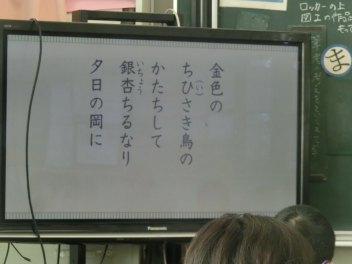 金色の
ちひさき鳥の
(い)
かたちして
銀杏ちるなり
いちょう
夕日の岡に
Panasonic
ロッカーの上
図工の作品
ま